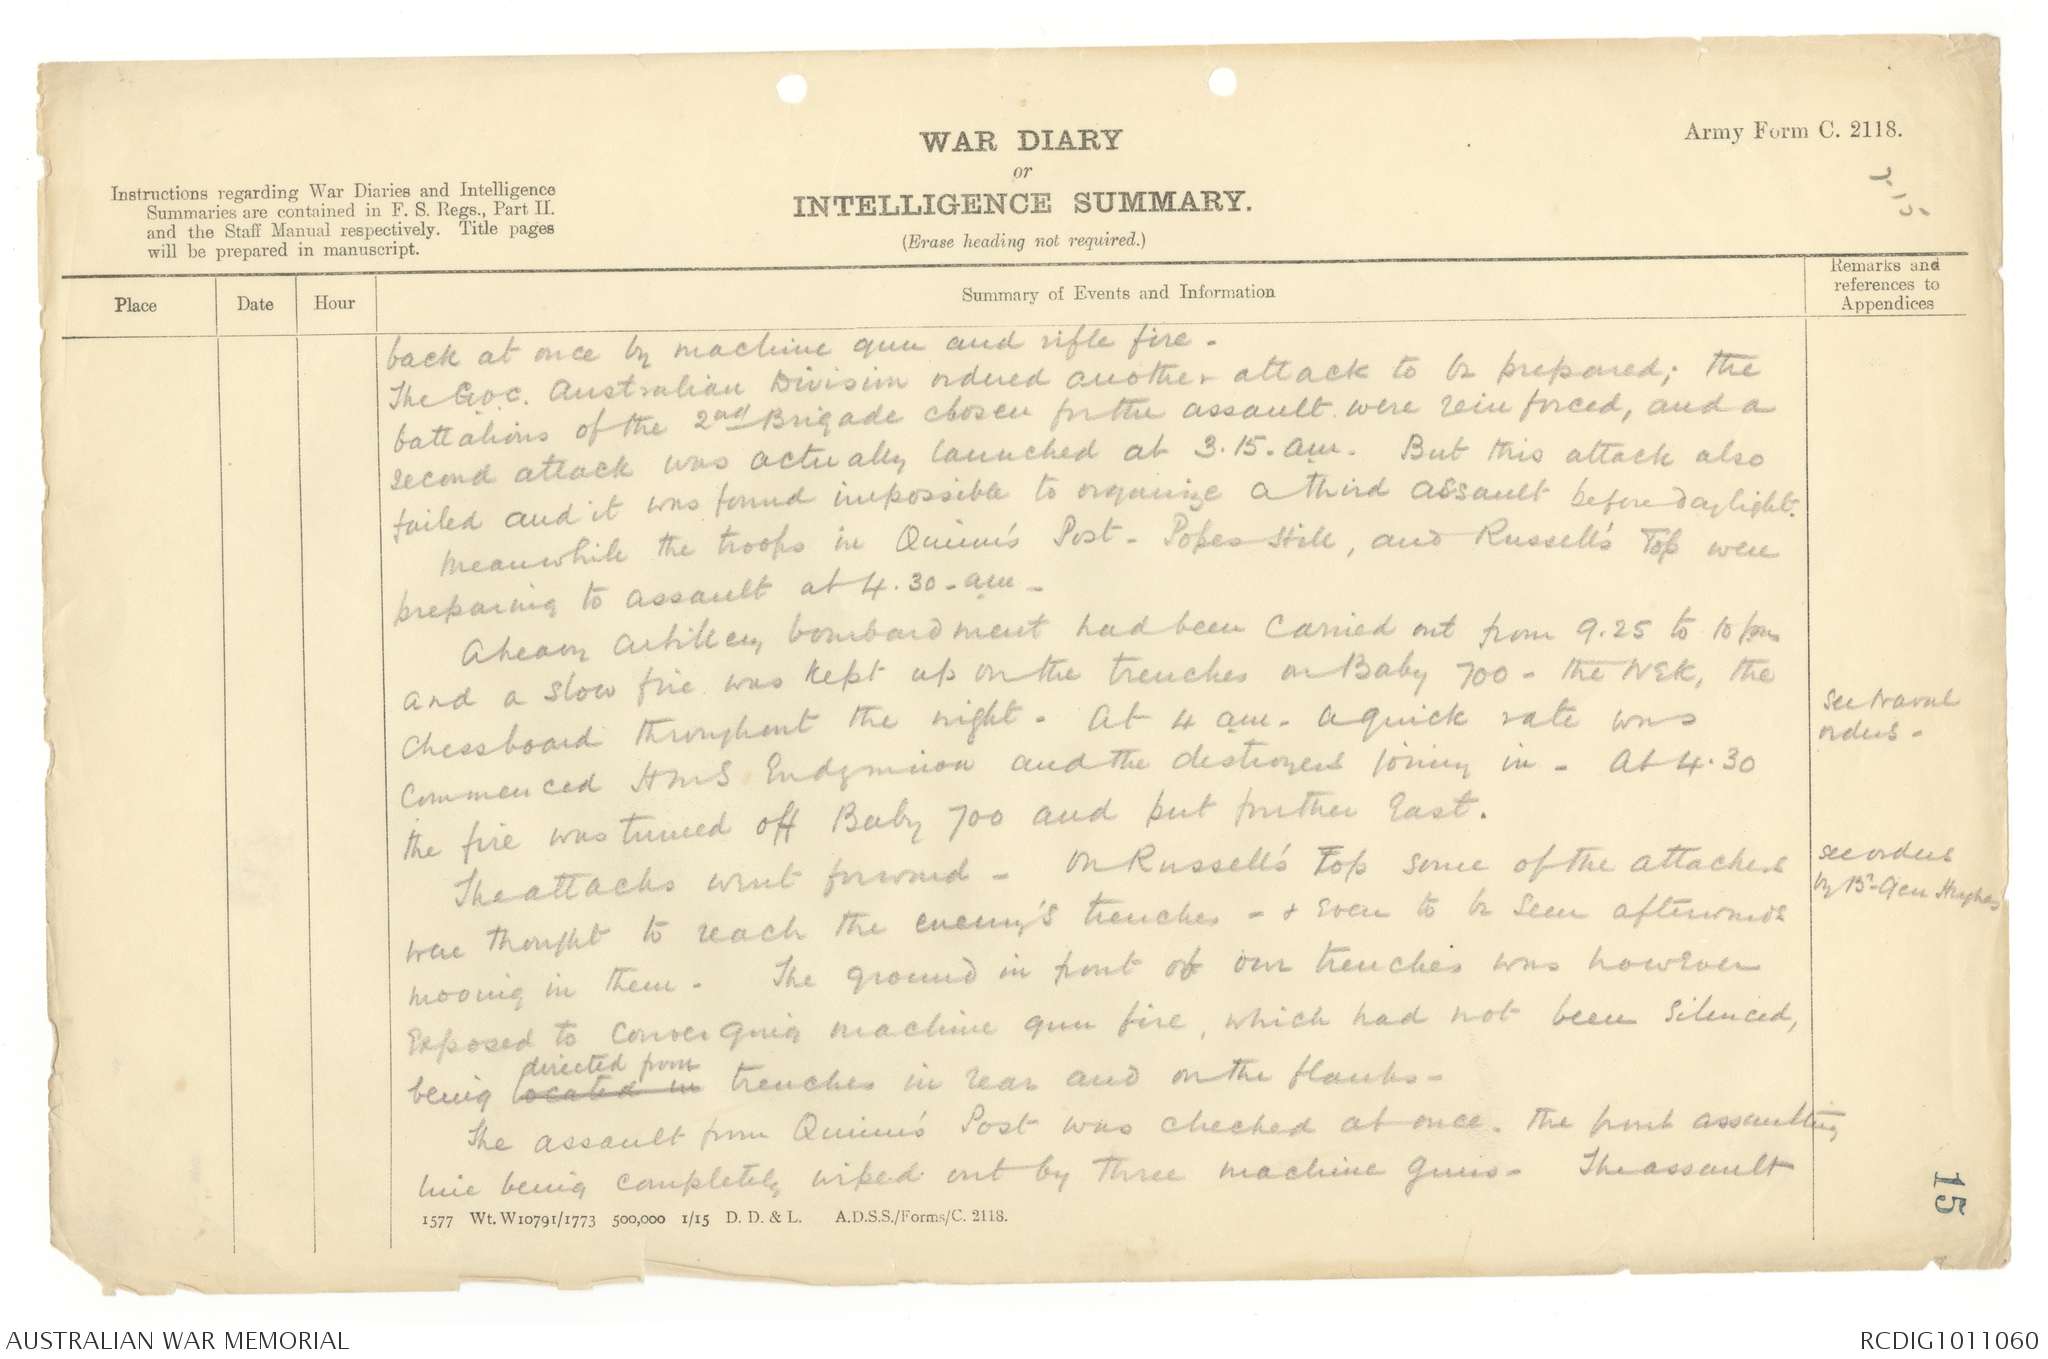 Army Form C. 2118.
WAR DIARY
or
INTELLIGENCE SUMMARY.
(Erase heading not required.)
Instructions regarding War Diaries and Intelligence
Summaries are contained in F. S. Regs., Part II.
and the Staff Manual respectively. Title pages
will be prepared in manuscript.
Place
Date
Hour
Summary of Events and Information
Remarks and
references to
Appendices
back at once by machine gun and rifle fire -
The G.O.C. Australian Division ordered another attack to be prepared; the
battalions of the 2nd Brigade chosen for the assault were reinforced, and a
second attack was actually launched at 3.15. am. But this attack also
failed and it was found impossible to organize a third assault before daylight.
Meanwhile the troops in Quinn's Post - Popes Hill, and Russell's Top were
preparing to assault at 4.30 - am -
A heavy artillery bombardment had been carried out from 9.25 to 10 pm
and a slow fire was kept up on the trenches on Baby 700 - the NEK, the
Chessboard throughout the night - At 4 am - a quick rate was
commenced HMS Endymion and the destroyers joining in - At 4.30
the fire was turned off Baby 700 and put further East.
The attacks went forward - On Russell's Top some of the attackers
were thought to reach the enemy's trenches - & even to be seen afterwards
moving in them - The ground in front of our trenches was however
exposed to converging machine gun fire, which had not been silenced,
directed from
being located in trenches in rear and on the flanks -
The assault from Quinn's Post was checked at once - the front assaulting
line being completely wiped out by three machine guns - The assault
see naval
orders -
see orders
by Br-Gen Hughes
15
1577 Wt. W10791/1773 500,000 1/15 D. D. & L. A.D.S.S./Forms/C. 2118.
AUSTRALIAN WAR MEMORIAL
RCDIG1011060